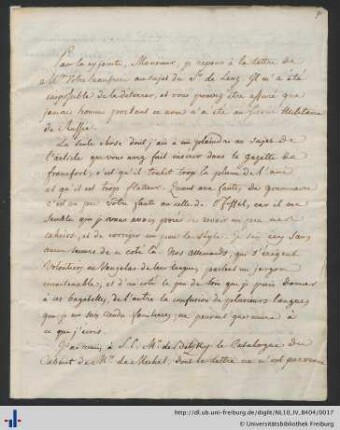 Par la cy jointe, Monsieur, je repons à la lettre de
Mr votre beaufrere au sujet du Sr de Lenz. Il m'a été
impossible de la deterrer, et vous pouvez être assuré que
jamais homme portant ce nom n'a été au service militaire
de Russie.
La seule chose dont j'aie à me plaindre au sujet de
l'article que vous avez fait inserer dans la gazette de
francfort, c'est qu'il trahit trop la plume de l'ami
et qu'il est trop flatteur. Quant aux fautes de grammaire
c'est un peu votre faute ou celle de Pfeffel, car il me
semble que je vous avois prié de revoir un peu mes
cahiers, et de corriger un peu le style. Je suis icy sans
aucun secours de ce coté là. Nos allemands, qui s'erigent
volontiers en Vaugelas de leur langue, parlent un jargon
insoutenable; et d'un coté le peu de tems que je puis donner
à ces bagatelles, de l'autre la confusion de plusieurs langues
que je me suis rendu familieres, ne peuvent que nuire à
ce que j'ecris.
J'ai remis à S.E. Mr de Betzky le Catalogue du
Cabinet de Mr de Mechel, dont la lettre ne m'est parvenue
http://dl.ub.uni-freiburg.de/diglit/NL10_IV_8404/0017
© Universitätsbibliothek Freiburg